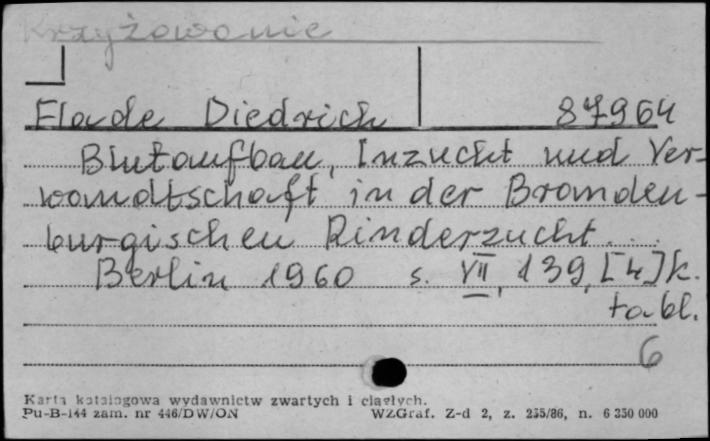 Krzyżowanie
Flade Diedrich 87964
Blutaufbau, Inzucht und Ver-
wandtschaft in der Branden-
burgischen Rinderzucht...
Berlin 1960 s. VII, 139, [4] k.
tabl.
6
Karta katalogowa wydawnictw zwartych i ciągłych.
Pu-B-144 zam. nr 446/DW/ON WZGraf. Z-d 2, z. 235/86, n. 6 350 000